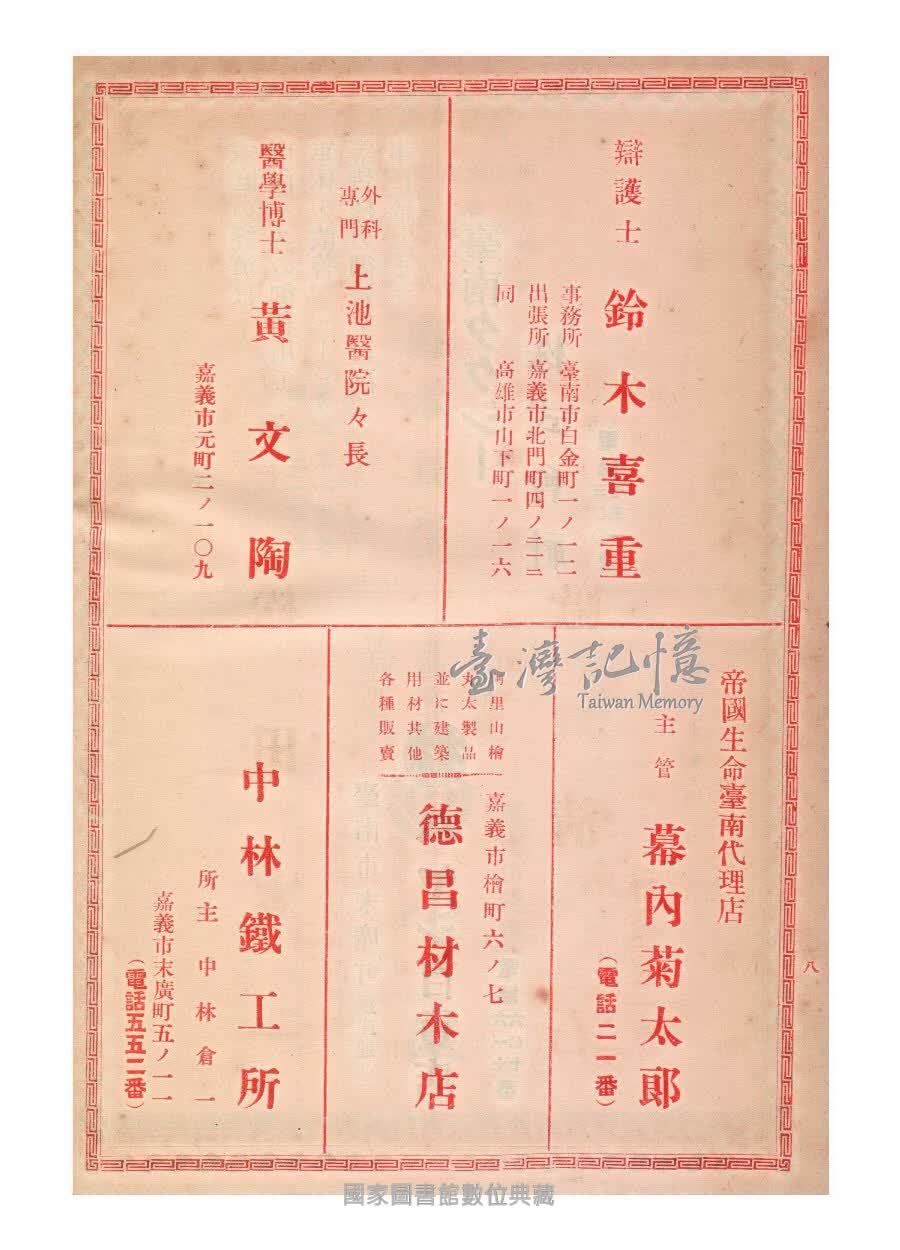 辯護士 鈴木喜重
事務所 臺南市白金町一ノ一二
出張所 嘉義市北門町四ノ二二
同 高雄市山下町一ノ一六
外科
專門
上池醫院々長
醫學博士 黃文陶
嘉義市元町二ノ一〇九
帝國生命臺南代理店
主管 幕內菊太郎
(電話二一番)
里山檜
丸太製品
並に建築
用材其他
各種販賣
嘉義市檜町六ノ七
德昌材木店
中林鐵工所
所主 中林倉一
嘉義市末廣町五ノ一一
(電話五五二番)
八
臺灣記憶
Taiwan Memory
國家圖書館數位典藏